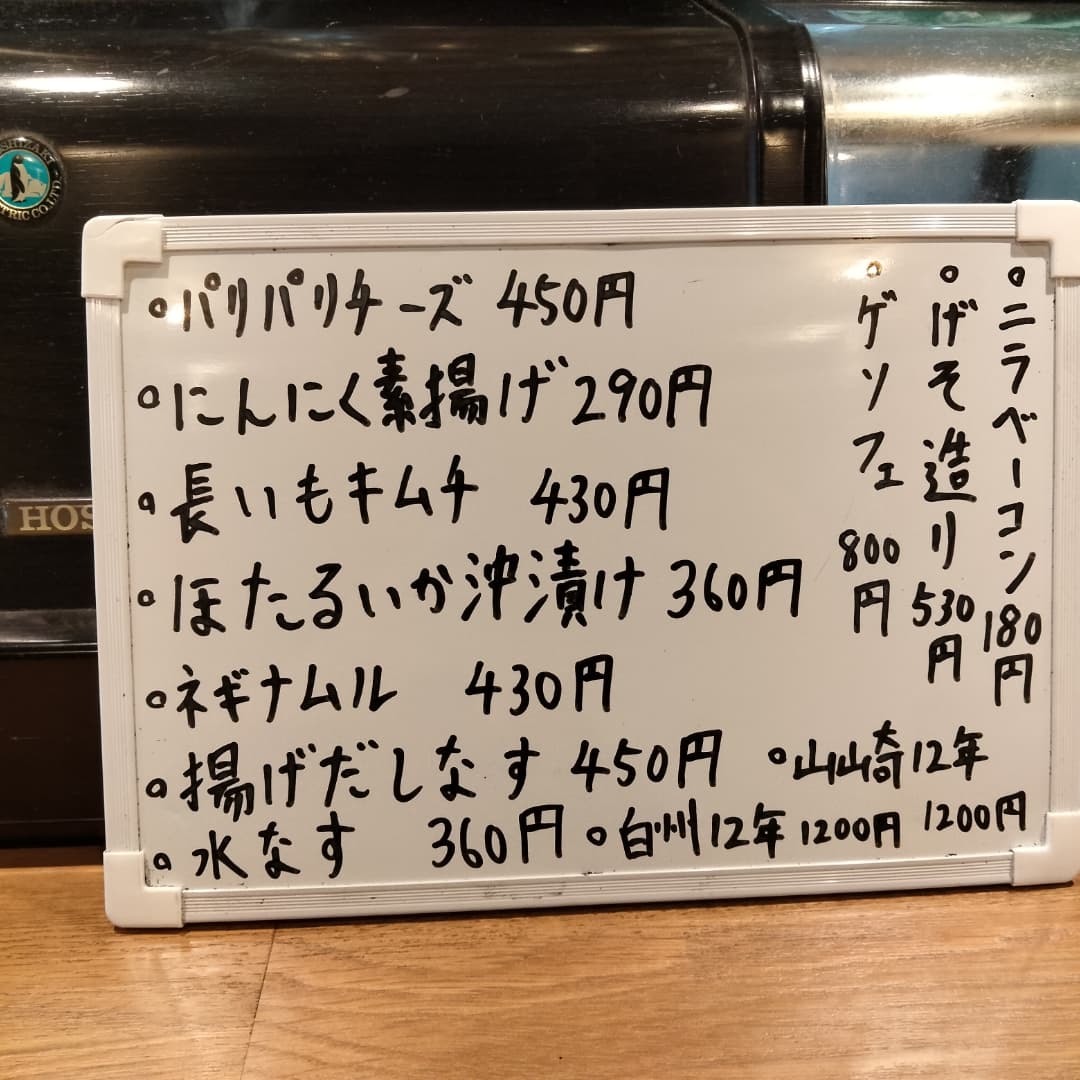 SHIZAKI
TRIC CO.LTD.
HOS
。パリパリチーズ 450円
。にんにく素揚げ 290円
。長いもキムチ 430円
。ほたるいか沖漬け 360円
。ネギナムル 430円
。揚げだしなす 450円
。水なす 360円
。ニラベーコン 180円
。げそ造り 530円
。ゲソフェ 800円
。山崎12年 1200円
。白州12年 1200円